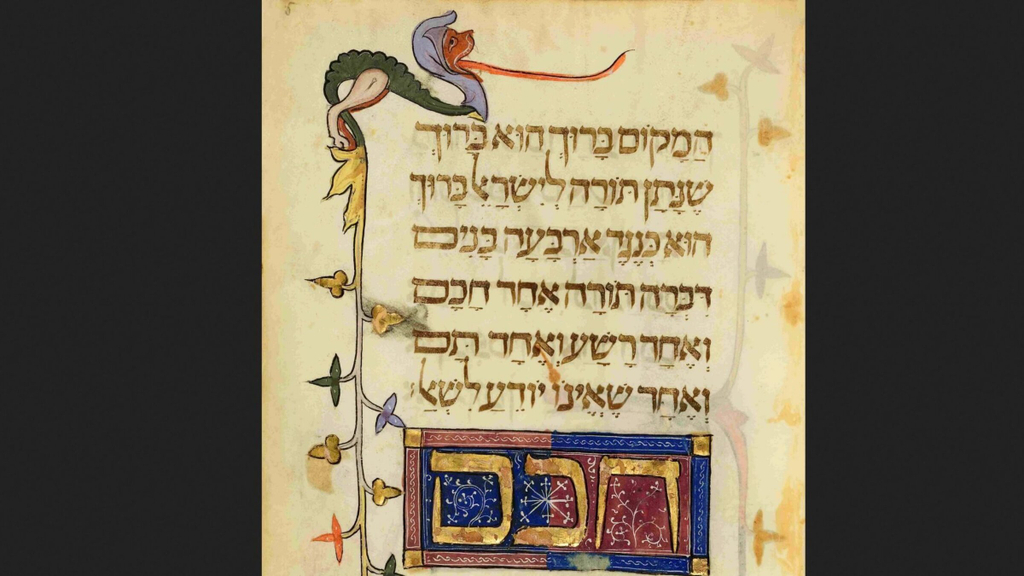 הַמָקוֹם בָּרוּךְ הוּא בָּרוּךְ
שֶׁנָתַן תּוֹרָה לְיִשְׂרָאֵל בָּרוּךְ
הוּא כְּנֶגֶד אַרְבָּעָה בָּנִים
דִבְּרָה תוֹרָה אֶחָד חָכָם
וְאֶחָד רָשָׁע וְאֶחָד תָּם
וְאֶחָד שֶׁאֵינוֹ יוֹדֵעַ לִשְׁאַל
חכם